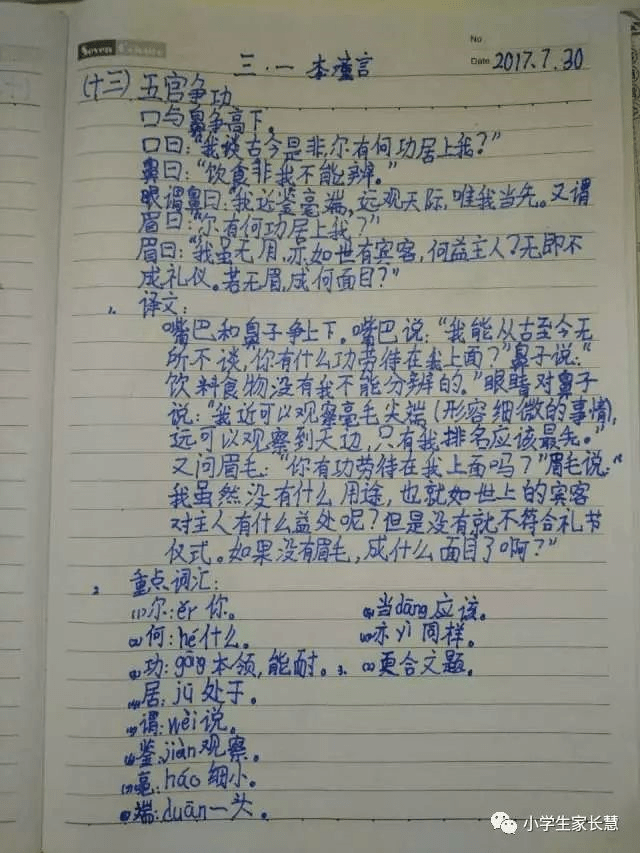 Seven
No
三.一 李瑾言
Date 2017.7.30
(十三) 五官争功
口与鼻争高下。
口曰:“我谈古今是非,尔有何功居上我?”
鼻曰:“饮食非我不能辨。”
眼谓鼻曰:“我近鉴毫端,远观天际,唯我当先。又谓
眉曰:“尔有何功居上我?”
眉曰:“我虽无用,亦如世有宾客,何益主人?无即不
成礼仪。若无眉,成何面目?”
1、译文:
嘴巴和鼻子争上下。嘴巴说:“我能从古至今无
所不谈,你有什么功劳待在我上面?”鼻子说:“
饮料食物没有我不能分辨的。”眼睛对鼻子
说:“我近可以观察毫毛尖端(形容细微的事情),
远可以观察到天边,只有我排名应该最先。”
又问眉毛:“你有功劳待在我上面吗?”眉毛说:“
我虽然没有什么用途,也就如世上的宾客
对主人有什么益处呢?但是没有就不符合礼节
仪式。如果没有眉毛,成什么面目了啊?”
2、重点词汇:
(1)尔:ěr 你。 (9)当dāng应该。
(2)何:hé什么。 (10)亦yì同样。
(3)功:gōng本领,能耐。 3、(1)更合文题。
(4)居:jū处于。
(5)谓:wèi说。
(6)鉴:jiàn观察。
(7)毫:háo细小。
(8)端:duān一头。
小学生家长慧